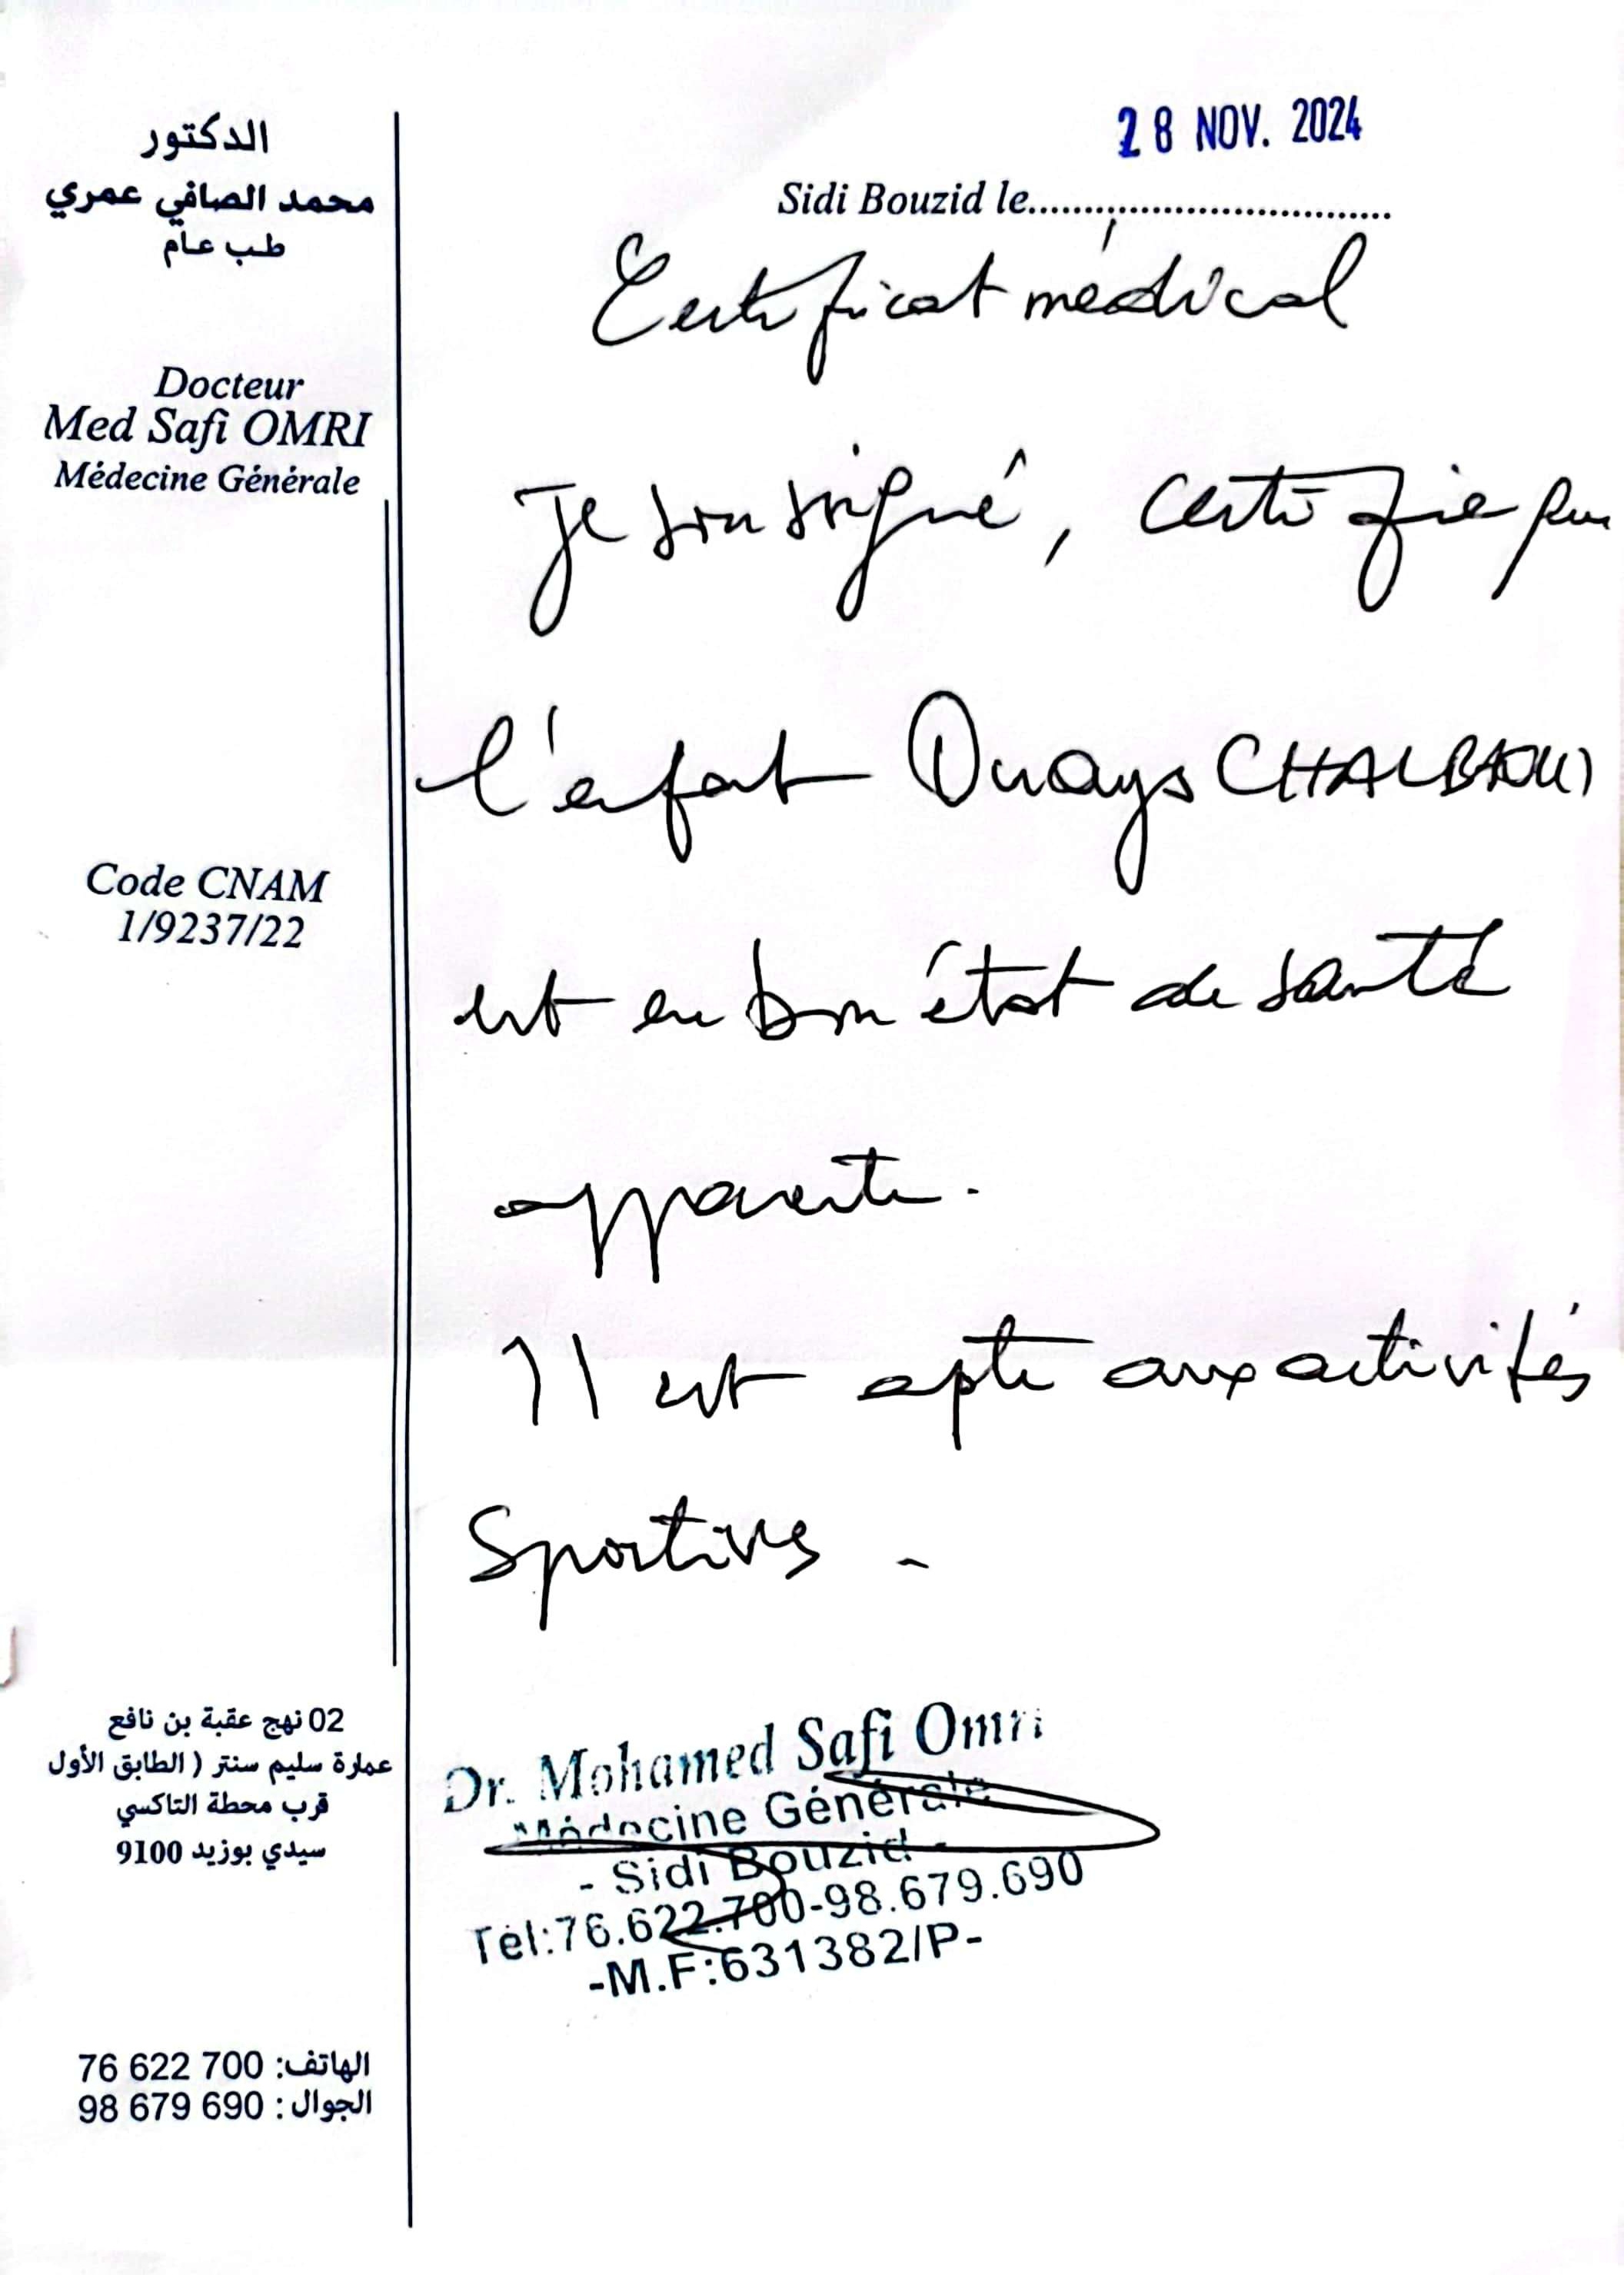 الدكتور
محمد الصافي عمري
طب عام
Docteur
Med Safi OMRI
Médecine Générale
Code CNAM
1/9237/22
02 نهج عقبة بن نافع
عمارة سليم سنتر ( الطابق الأول
قرب محطة التاكسي
سيدي بوزيد 9100
الهاتف: 76 622 700
الجوال : 98 679 690
28 NOV. 2024
Sidi Bouzid le
Certificat médical
Je soussigné, certifie que
l'enfant CHALBAOUI
est en bon état de santé
apparente.
Il est apte aux activités
Sportives -
Dr. Mohamed Safi Omri
Médecine Générale
- Sidi Bouzid -
Tél:76.622.700-98.679.690
-M.F:631382/P-